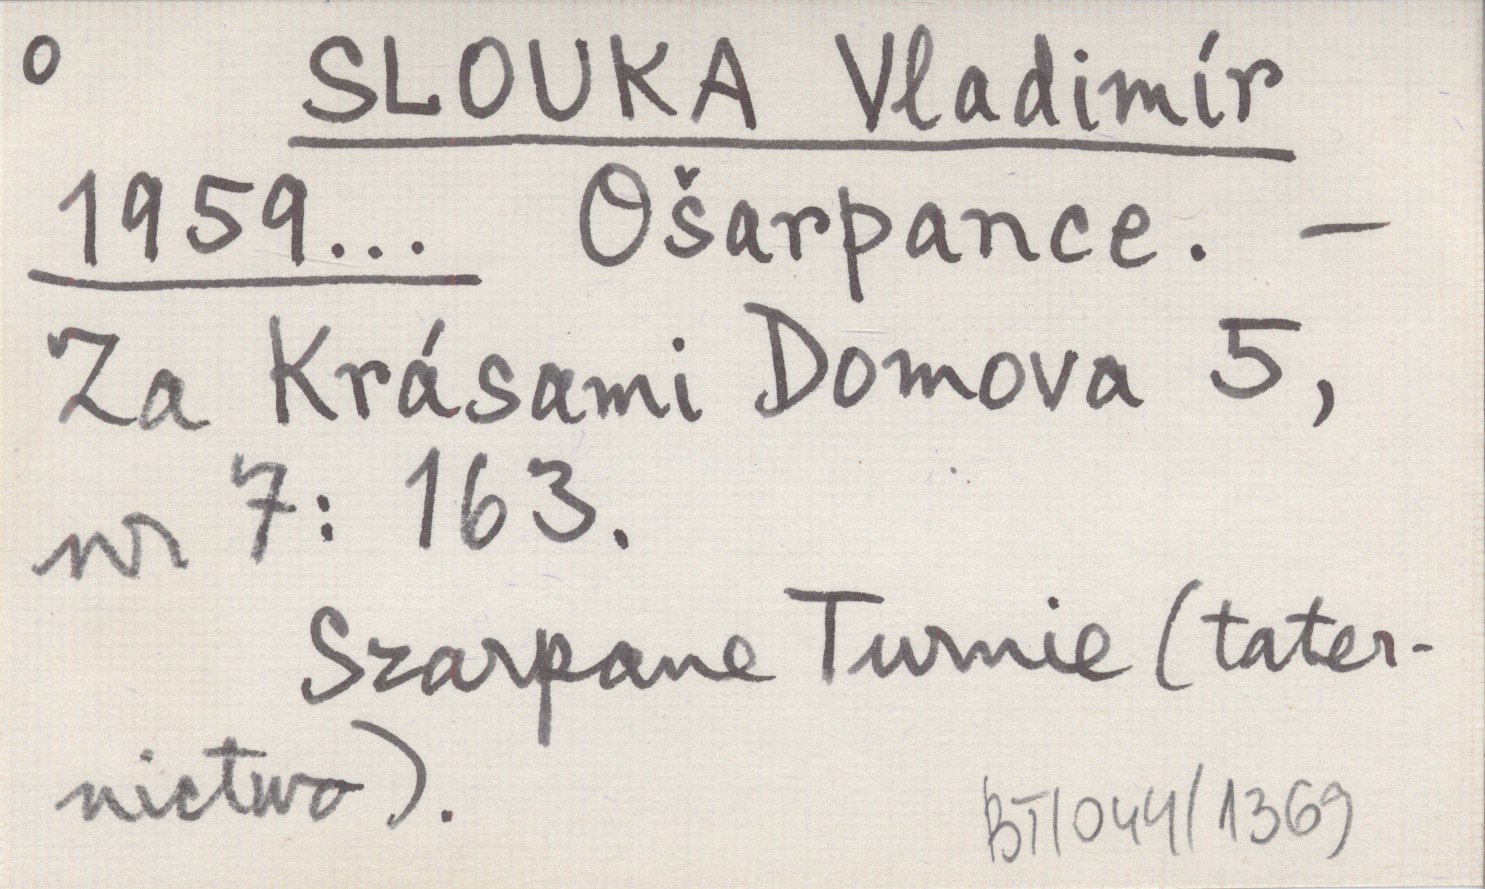 o SLOUKA Vladimír
1959... Ošarpance. —
Za Krásami Domova 5,
nr 7: 163.
Szarpane Turnie (tater-
nictwo).
BT/044/1369